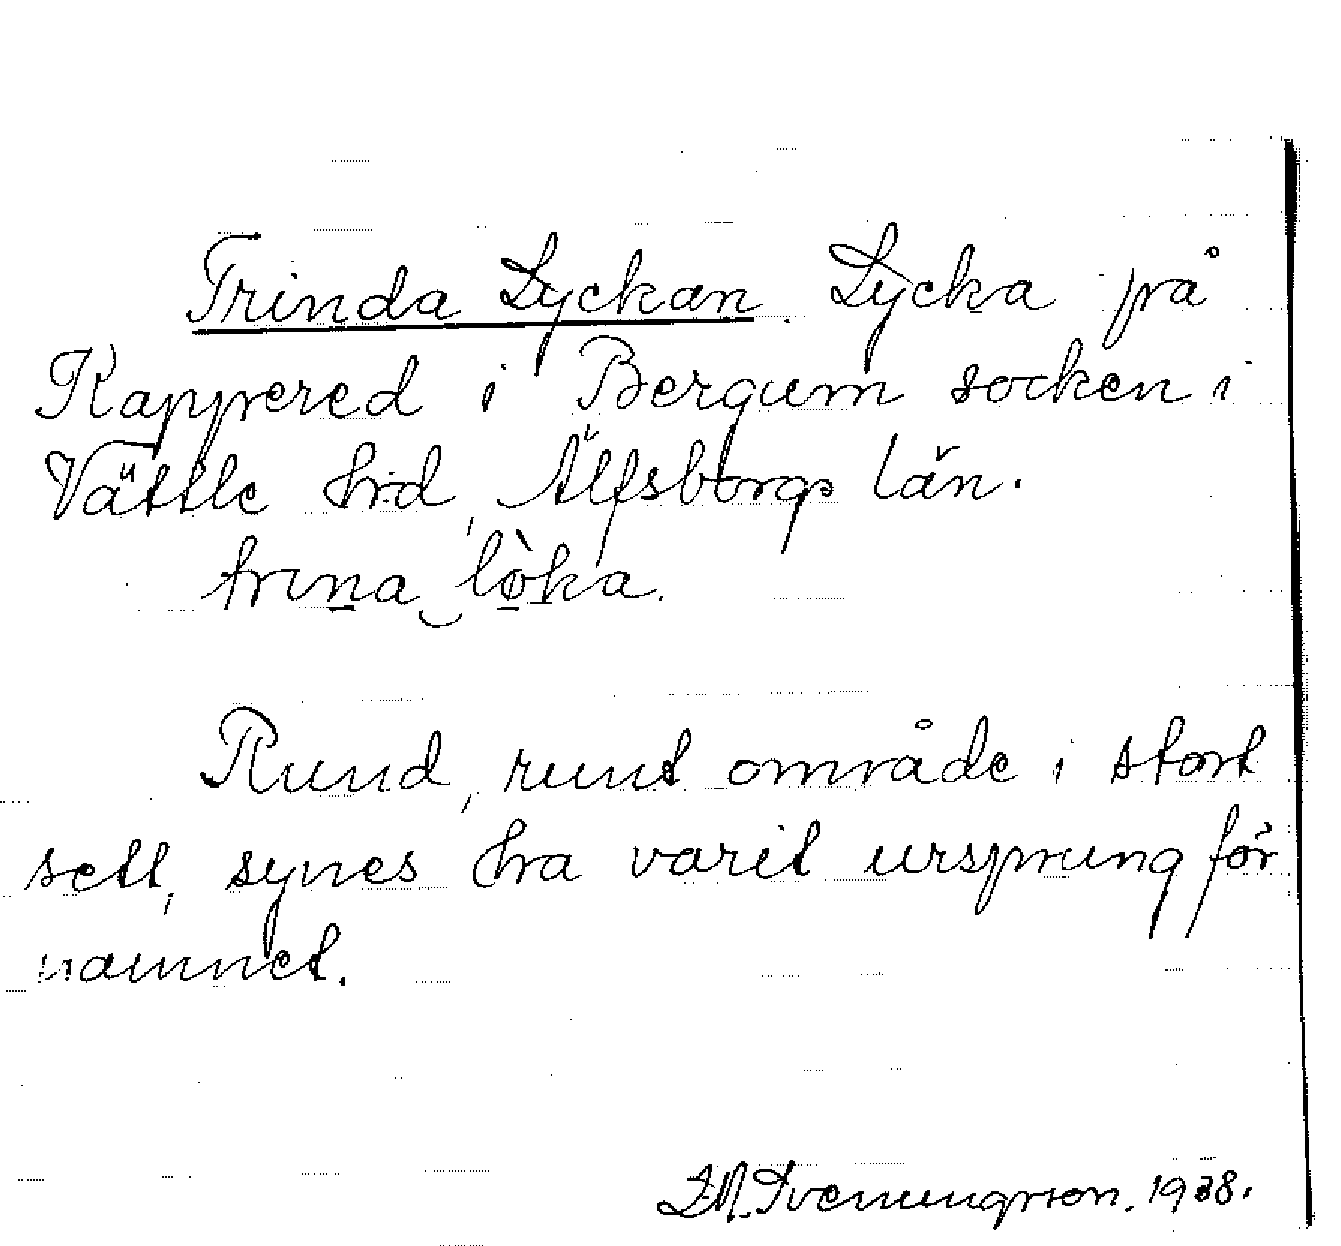 Trinda Lyckan. Lycka på
Kappered i Bergum socken i
Vättle hd, Älfsborgs län.
trina lòka.
Rund, runt område i stort
sett, synes ha varit ursprung för
namnet.
Svenungsson. 1938.